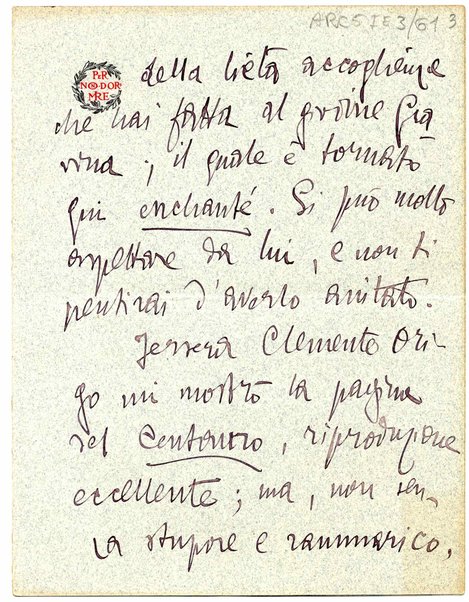 ARC5IE3/61 3
PER
NON DOR
MIRE
della lieta accoglienza
che hai fatta al giovine Gra
vina, il quale è tornato
qui enchanté. Si può molto
aspettare da lui, e non ti
pentirai d'averlo aiutato.
Iersera Clemente Ori-
go mi mostrò la pagina
del Centauro, riproduzione
eccellente; ma, non sen-
za stupore e rammarico,